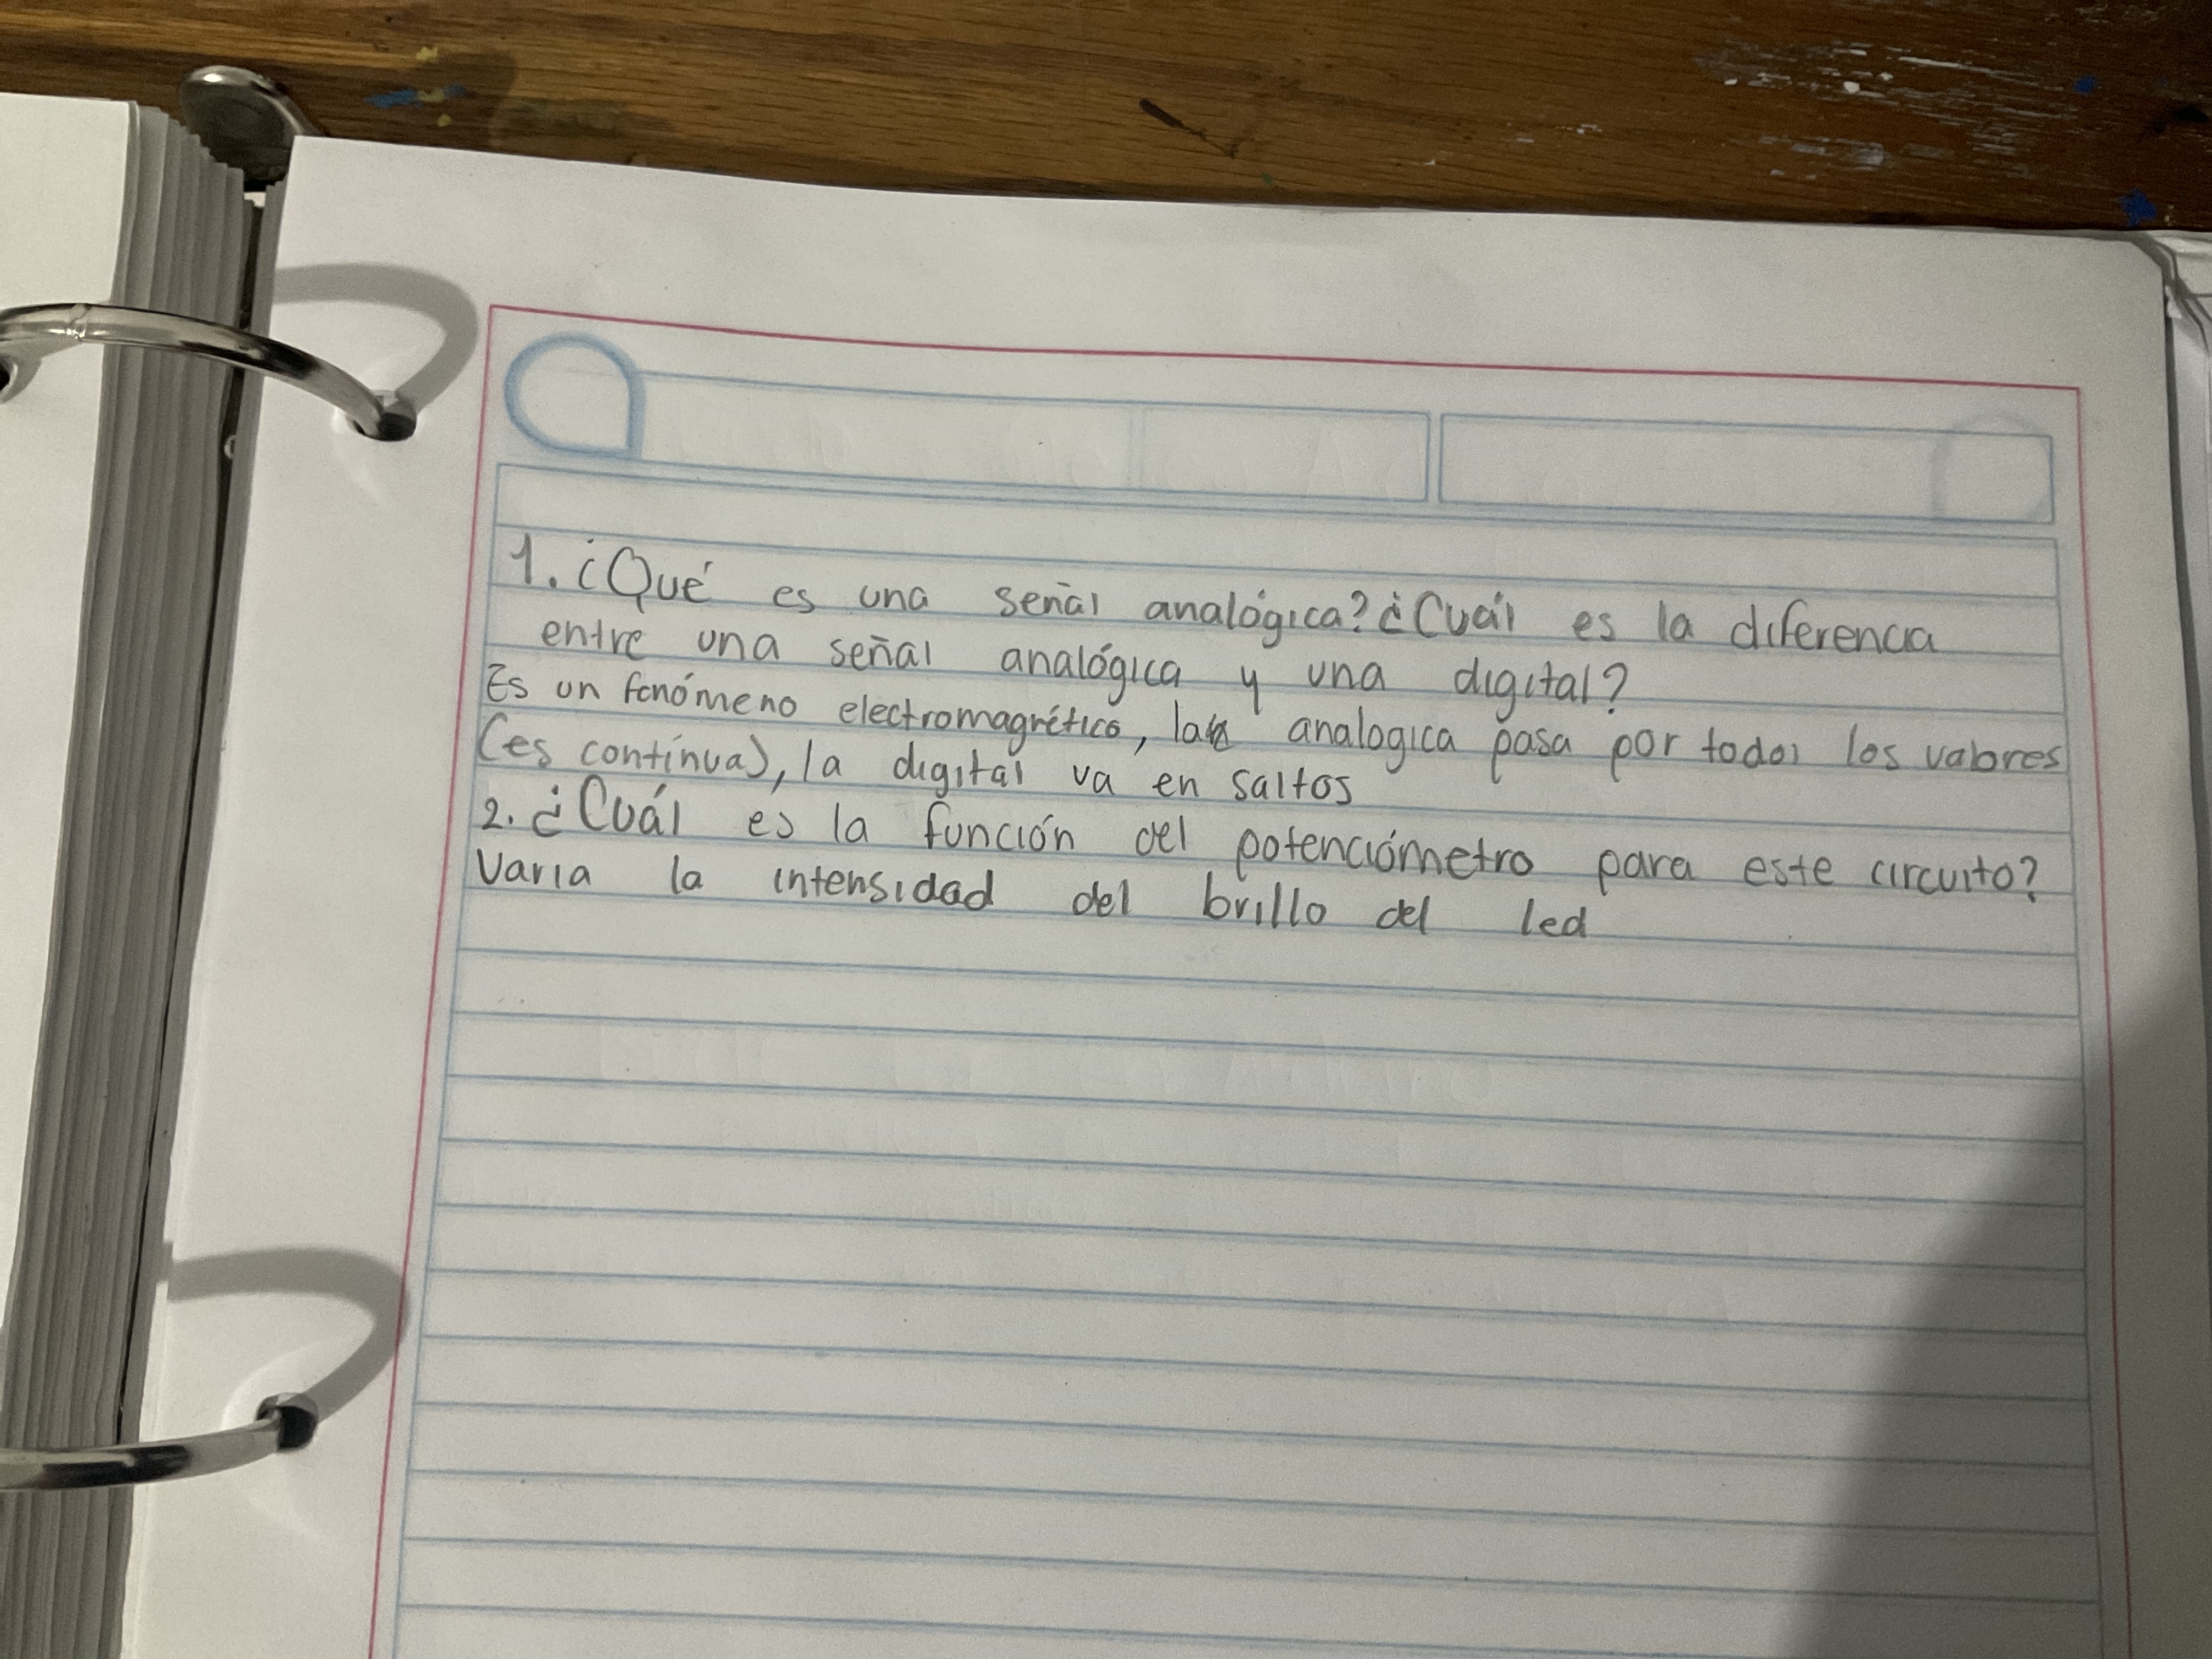 1. ¿Qué es una señal analógica? ¿Cuál es la diferencia
entre una señal analógica y una digital?
Es un fenómeno electromagnético, la analogica pasa por todos los valores
(es contínua), la digital va en saltos
2. ¿Cuál es la función del potenciómetro para este circuito?
Varia la intensidad del brillo del led